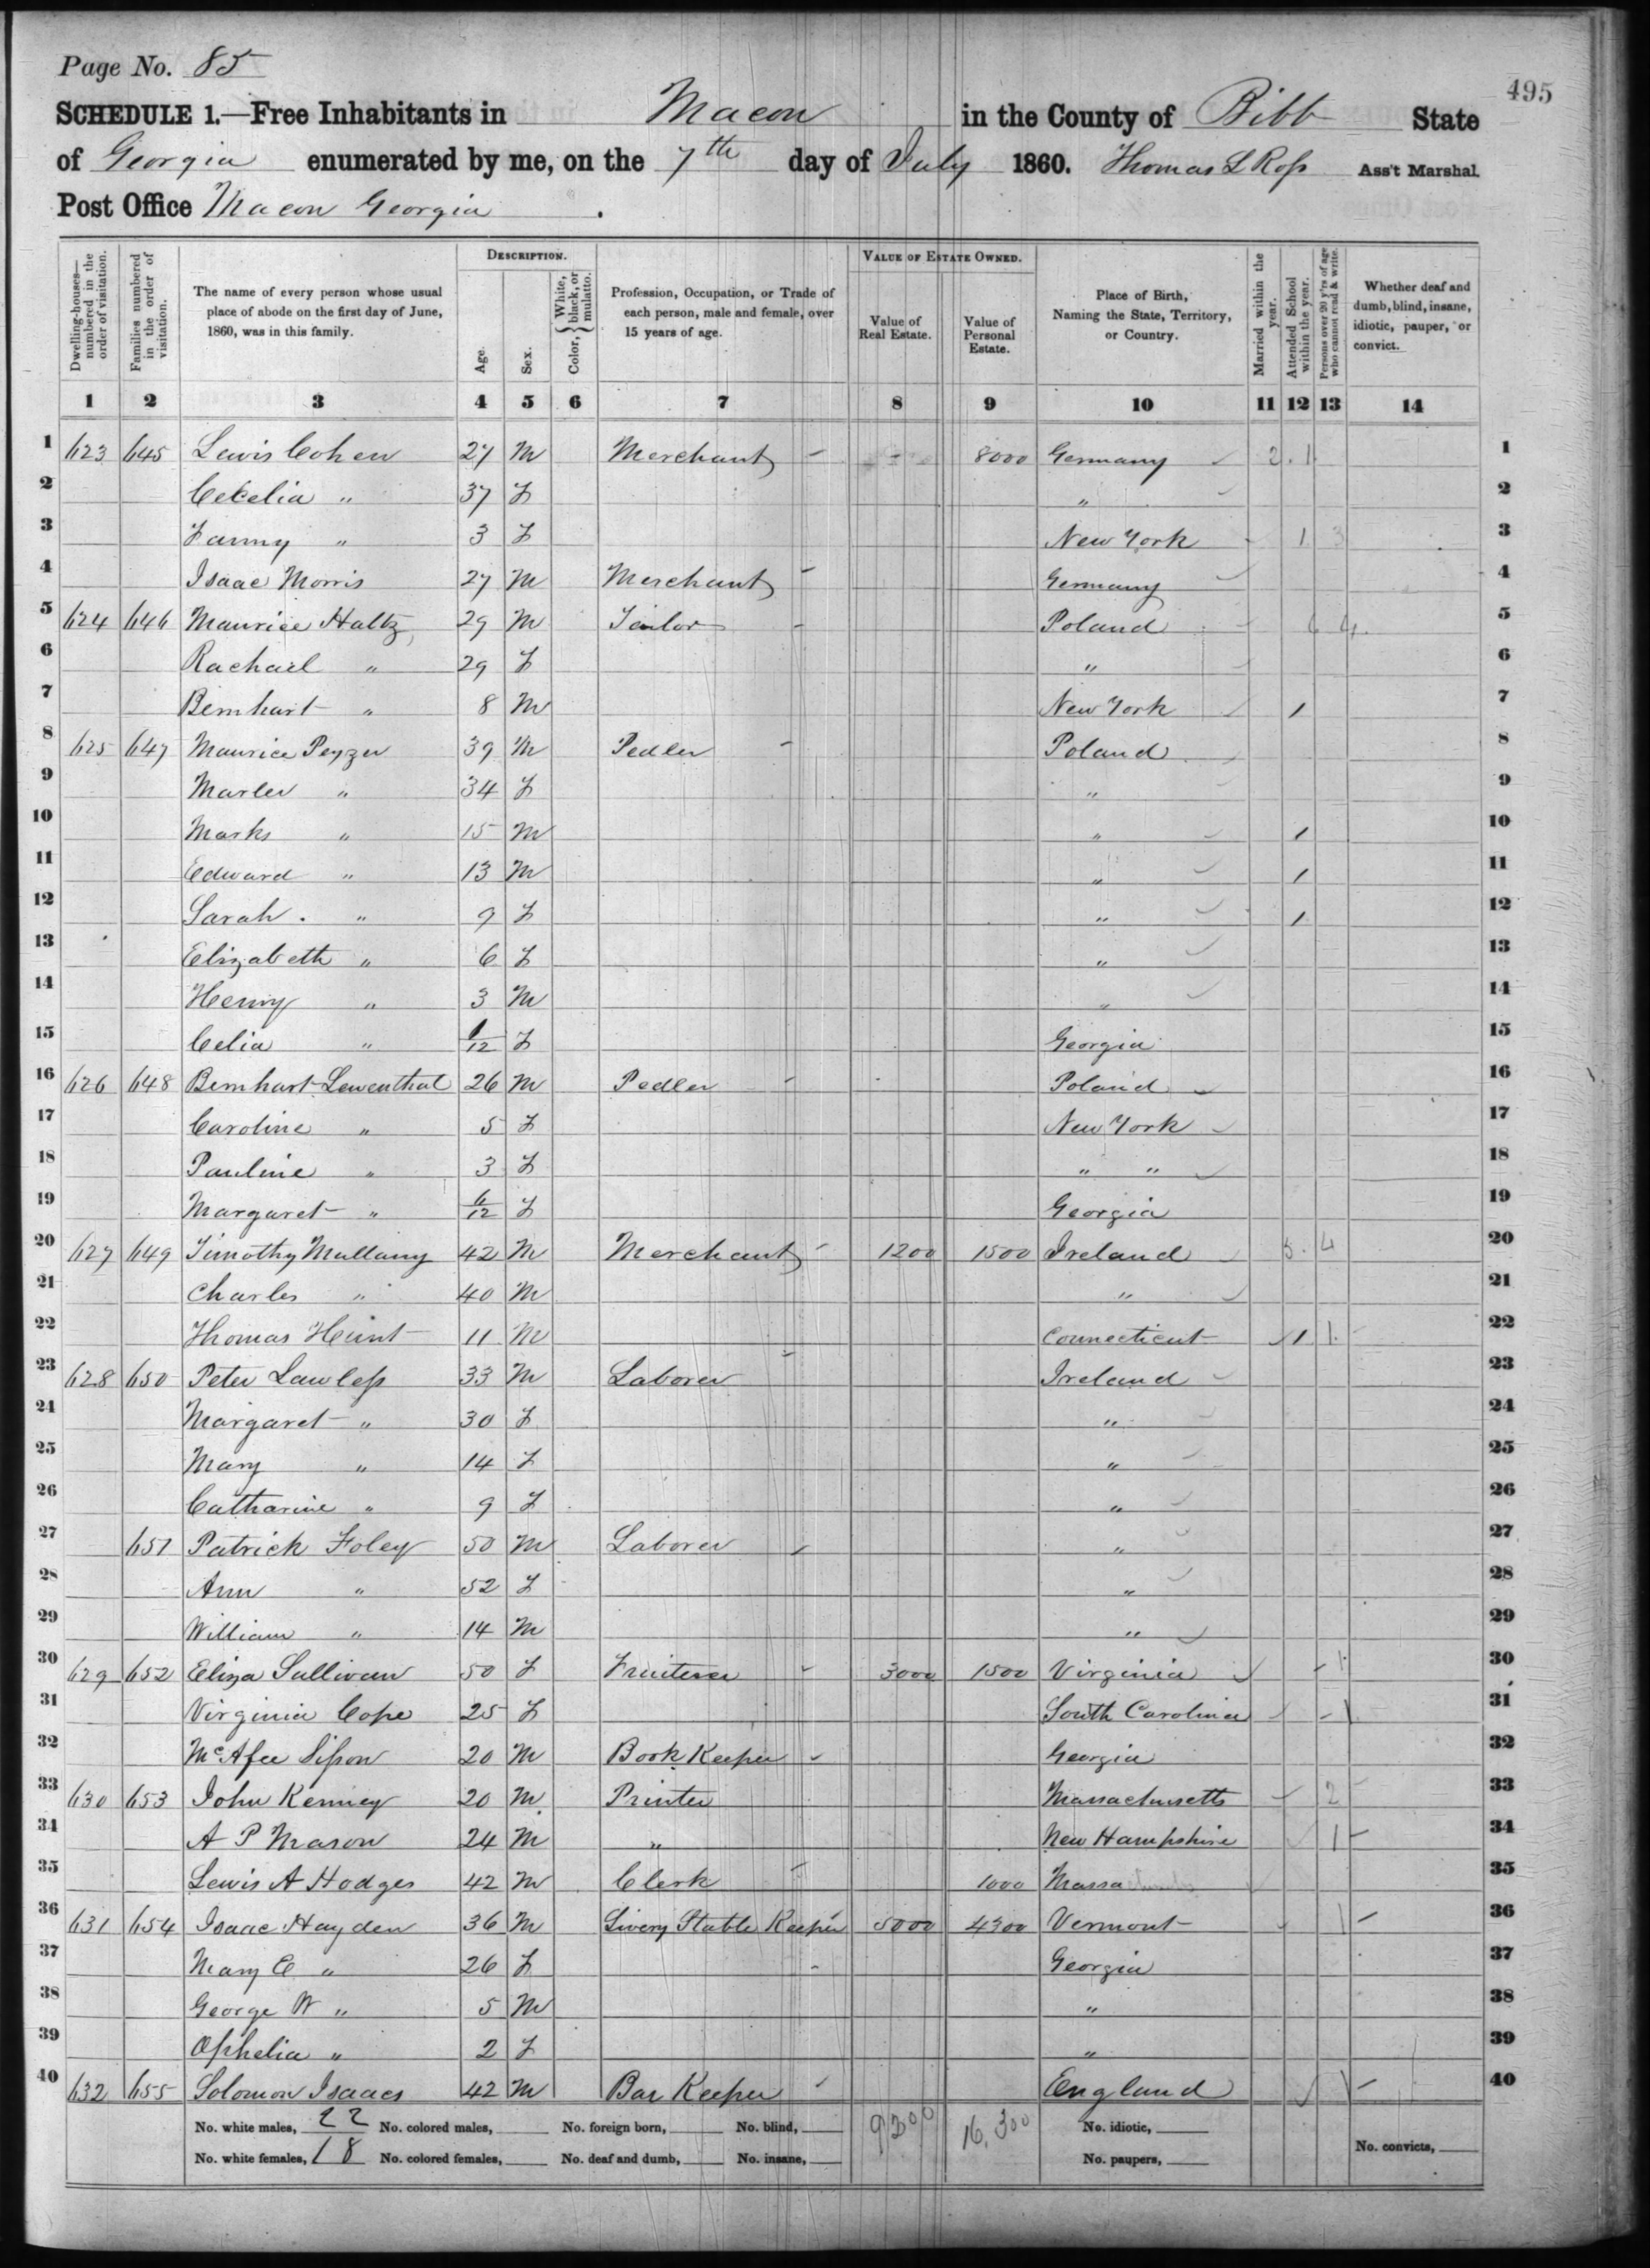 Page No. 85
495
SCHEDULE 1.—Free Inhabitants in Macon in the County of Bibb State
of Georgia enumerated by me, on the 7th day of July 1860. Thomas L Ross Ass't Marshal.
Post Office Macon Georgia .
Dwelling-houses—numbered in the order of visitation.
Families numbered in the order of visitation.
The name of every person whose usual place of abode on the first day of June, 1860, was in this family.
DESCRIPTION.
Age.
Sex.
Color, { White, black, or mulatto.
Profession, Occupation, or Trade of each person, male and female, over 15 years of age.
VALUE OF ESTATE OWNED.
Value of Real Estate.
Value of Personal Estate.
Place of Birth, Naming the State, Territory, or Country.
Married within the year.
Attended School within the year.
Persons over 20 y'rs of age who cannot read & write.
Whether deaf and dumb, blind, insane, idiotic, pauper, or convict.
1 2 3 4 5 6 7 8 9 10 11 12 13 14
1 623 645 Lewis Cohen 27 M Merchant - 8000 Germany 2. 1 1
2 Cecelia " 37 F " 2
3 Fanny " 3 F New York 1 3 3
4 Isaac Morris 27 M Merchant Germany 4
5 624 646 Maurice Haltz 29 M Tailor Poland 4. 5
6 Rachael " 29 F " 6
7 Bernhart " 8 M New York / 7
8 625 647 Maurice Peyzer 39 M Pedler Poland 8
9 Marler " 34 F " 9
10 Marks " 15 M " / 10
11 Edward " 13 M " / 11
12 Sarah " 9 F " / 12
13 Elizabeth " 6 F " 13
14 Henry " 3 M " 14
15 Celia " 1/12 F Georgia 15
16 626 648 Bernhart Lewenthal 26 M Pedler Poland 16
17 Caroline " 5 F New York 17
18 Pauline " 3 F " " 18
19 Margaret " 6/12 F Georgia 19
20 627 649 Timothy Mullany 42 M Merchant 1200 1500 Ireland 5. 4 20
21 Charles " 40 M " 21
22 Thomas Hunt 11 M Connecticut / 1 22
23 628 650 Peter Lawless 33 M Laborer Ireland 23
24 Margaret " 30 F " 24
25 Mary " 14 F " 25
26 Catharine " 9 F " 26
27 651 Patrick Foley 50 M Laborer " 27
28 Ann " 52 F " 28
29 William " 14 M " 29
30 629 652 Eliza Sullivan 50 F Fruiterer 3000 1500 Virginia 1 30
31 Virginia Cope 25 F South Carolina 1 31
32 McAfee Sisson 20 M Book Keeper Georgia 32
33 630 653 John Kenney 20 M Printer Massachusetts 2 33
34 A P Mason 24 M " New Hampshire 1 34
35 Lewis A Hodges 42 M Clerk 1000 Massachusetts 35
36 631 654 Isaac Hayden 36 M Livery Stable Keeper 5000 4300 Vermont 1 36
37 Mary E " 26 F Georgia 37
38 George W " 5 M " 38
39 Ophelia " 2 F " 39
40 632 655 Solomon Isaacs 42 M Bar Keeper England 1 40
No. white males, 22 No. colored males, No. foreign born, No. blind, 9200 16,300 No. idiotic,
No. white females, 18 No. colored females, No. deaf and dumb, No. insane, No. paupers, No. convicts,